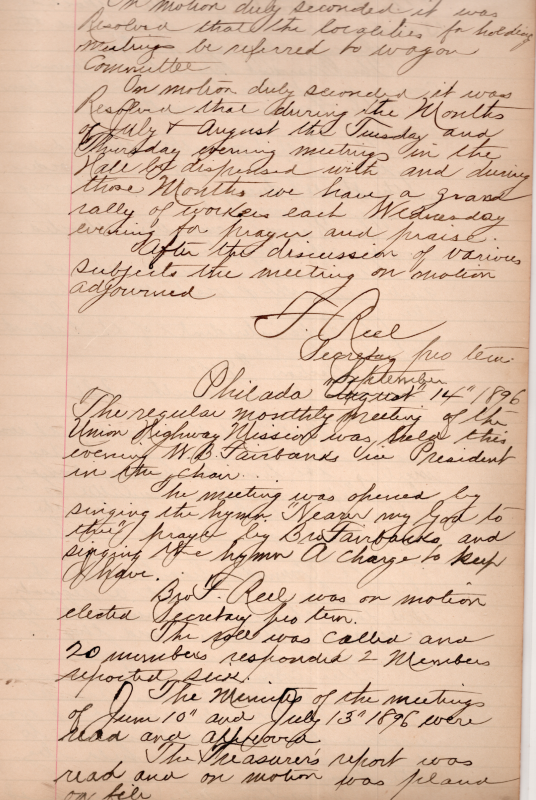 On motion duly seconded it was
Resolved that the localities for holding
meetings be referred to wagon
Committee
On motion duly seconded it was
Resolved that during the Months
of July & August the Tuesday and
Thursday evening meetings in the
Hall be dispensed with and during
those Months we have a grand
rally of workers each Wednesday
evening for prayer and praise.
After the discussion of various
subjects the meeting on motion
adjourned
T. Reel
Secretary pro tem.
September
Philada August 14" 1896
The regular monthly meeting of the
Union Highway Mission was held this
evening W. B. Fairbanks Vice President
in the chair.
The meeting was opened by
singing the hymn "Nearer my God to
thee" prayer by Bro Fairbanks and
singing the hymn A charge to keep
I have.
Bro T. Reel was on motion
elected Secretary pro tem.
The roll was called and
20 members responded 2 Members
reported sick.
The Minutes of the meetings
of June 10" and July 13" 1896 were
read and approved
The Treasurer's report was
read and on motion was placed
on file